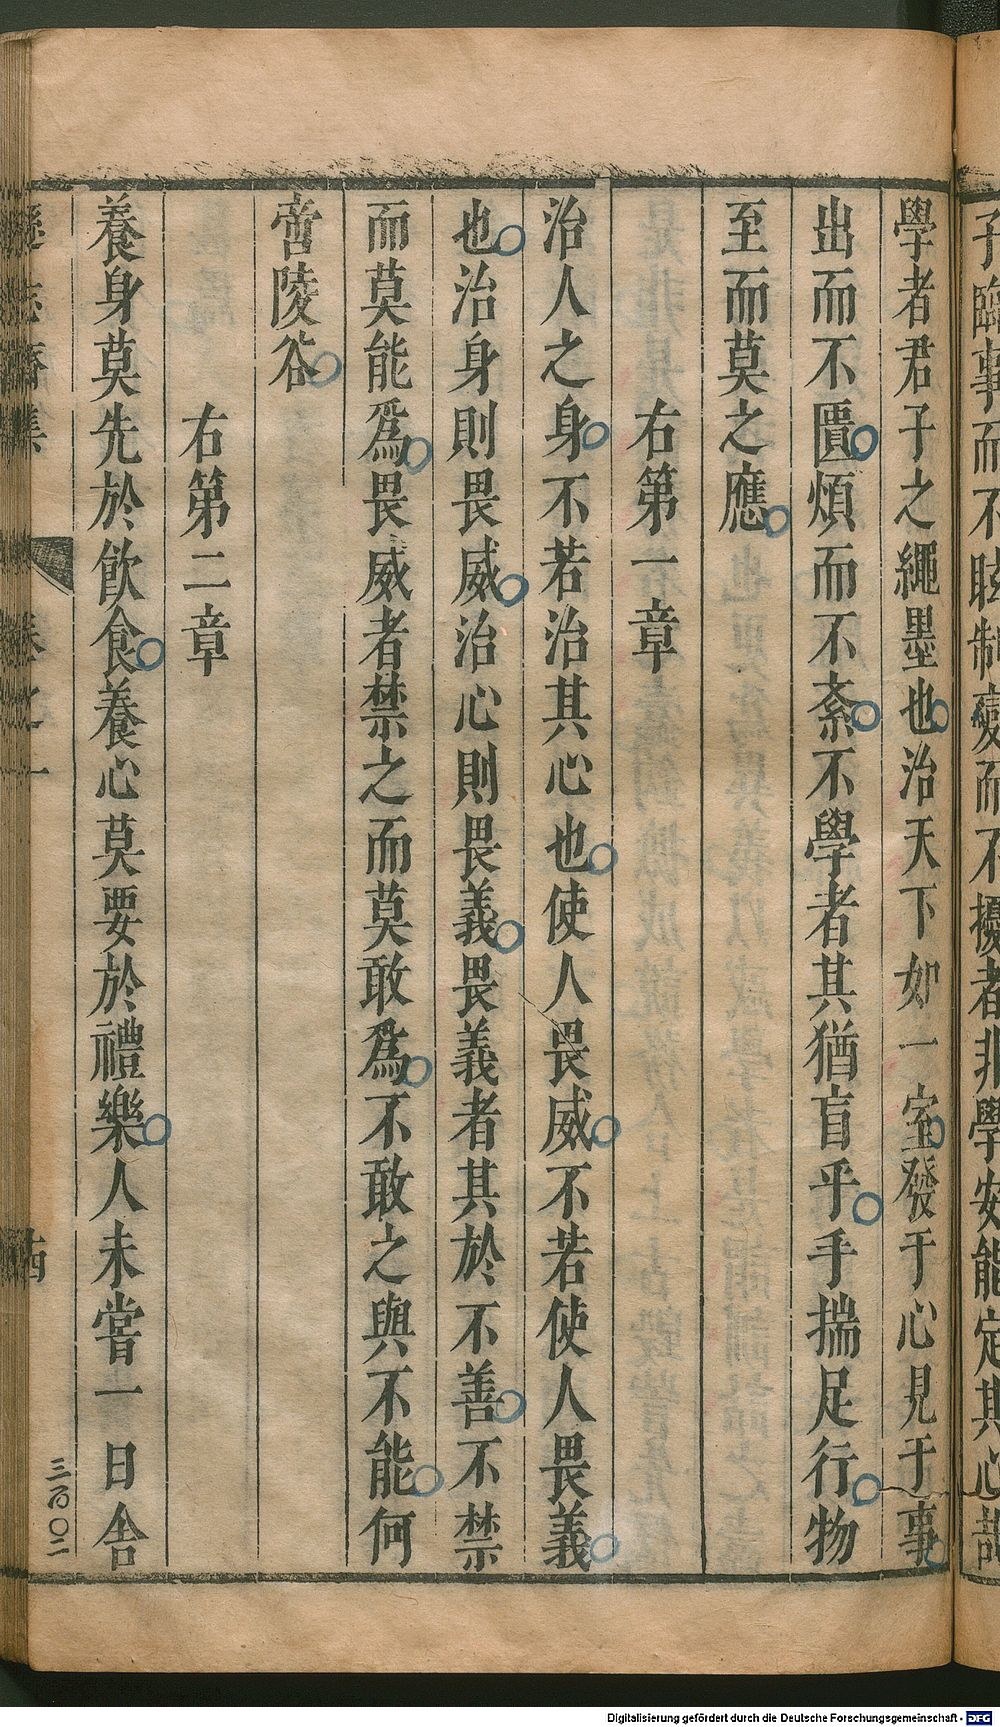 子臨事而不眩制變而不擾者非學安能定其心哉
學者君子之繩墨也治天下如一室發于心見于事
出而不匱煩而不紊不學者其猶盲乎手揣足行物
至而莫之應
右第一章
治人之身不若治其心也使人畏威不若使人畏義
也治身則畏威治心則畏義畏義者其於不善不禁
而莫能爲畏威者禁之而莫敢爲不敢之與不能何
啻陵谷
右第二章
養身莫先於飲食養心莫要於禮樂人未嘗一日舍
遜志齋集
卷之一
十四
三百〇二
Digitalisierung gefördert durch die Deutsche Forschungsgemeinschaft - DFG